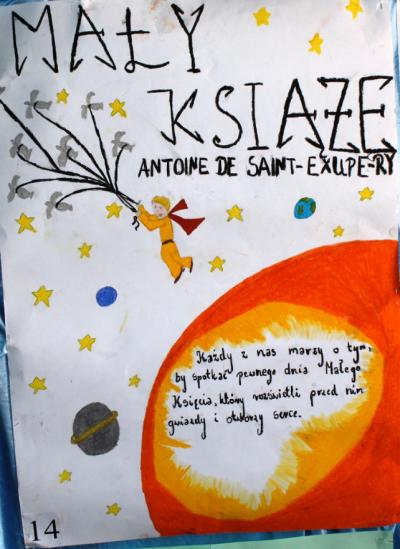 MAŁY
KSIAŻE
ANTOINE DE SAINT-EXUPE-RY
Każdy z nas marzy o tym,
by spotkać pewnego dnia Małego
Księcia, który rozświetli przed nim
gwiazdy i otworzy serce.
14